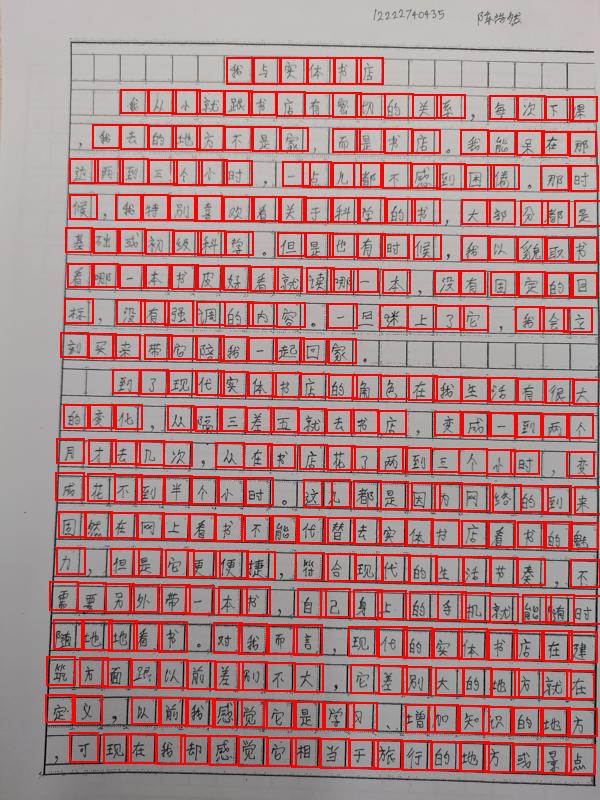 12222740435 陈浩然
我与实体书店
我从小就跟书店有密切的关系，每次下课
，我去的地方不是家，而是书店。我能呆在那
边两到三个小时，一点儿都不感到困倦。那时
候，我特别喜欢看关于科学的书，大部分都是
基础或初级科学。但是也有时候，我以貌取书
看哪一本书皮好看就读哪一本，没有固定的目
标，没有强调的内容。一旦迷上了它，我会立
刻买来带它陪我一起回家。
到了现代实体书店的角色在我生活有很大
的变化，从隔三差五就去书店，变成一到两个
月才去几次，从在书店花了两到三个小时，变
成花不到半个小时。这儿都是因为网络的到来
固然在网上看书不能代替去实体书店看书的魅
力，但是它更便捷，符合现代的生活节奏，不
需要另外带一本书，自己身上的手机就能随时
随地地看书。对我而言，现代的实体书店在建
筑方面跟以前差别不大，它差别大的地方就在
定义，以前我感觉它是学习、增加知识的地方
，可现在我却感觉它相当于旅行的地方或景点